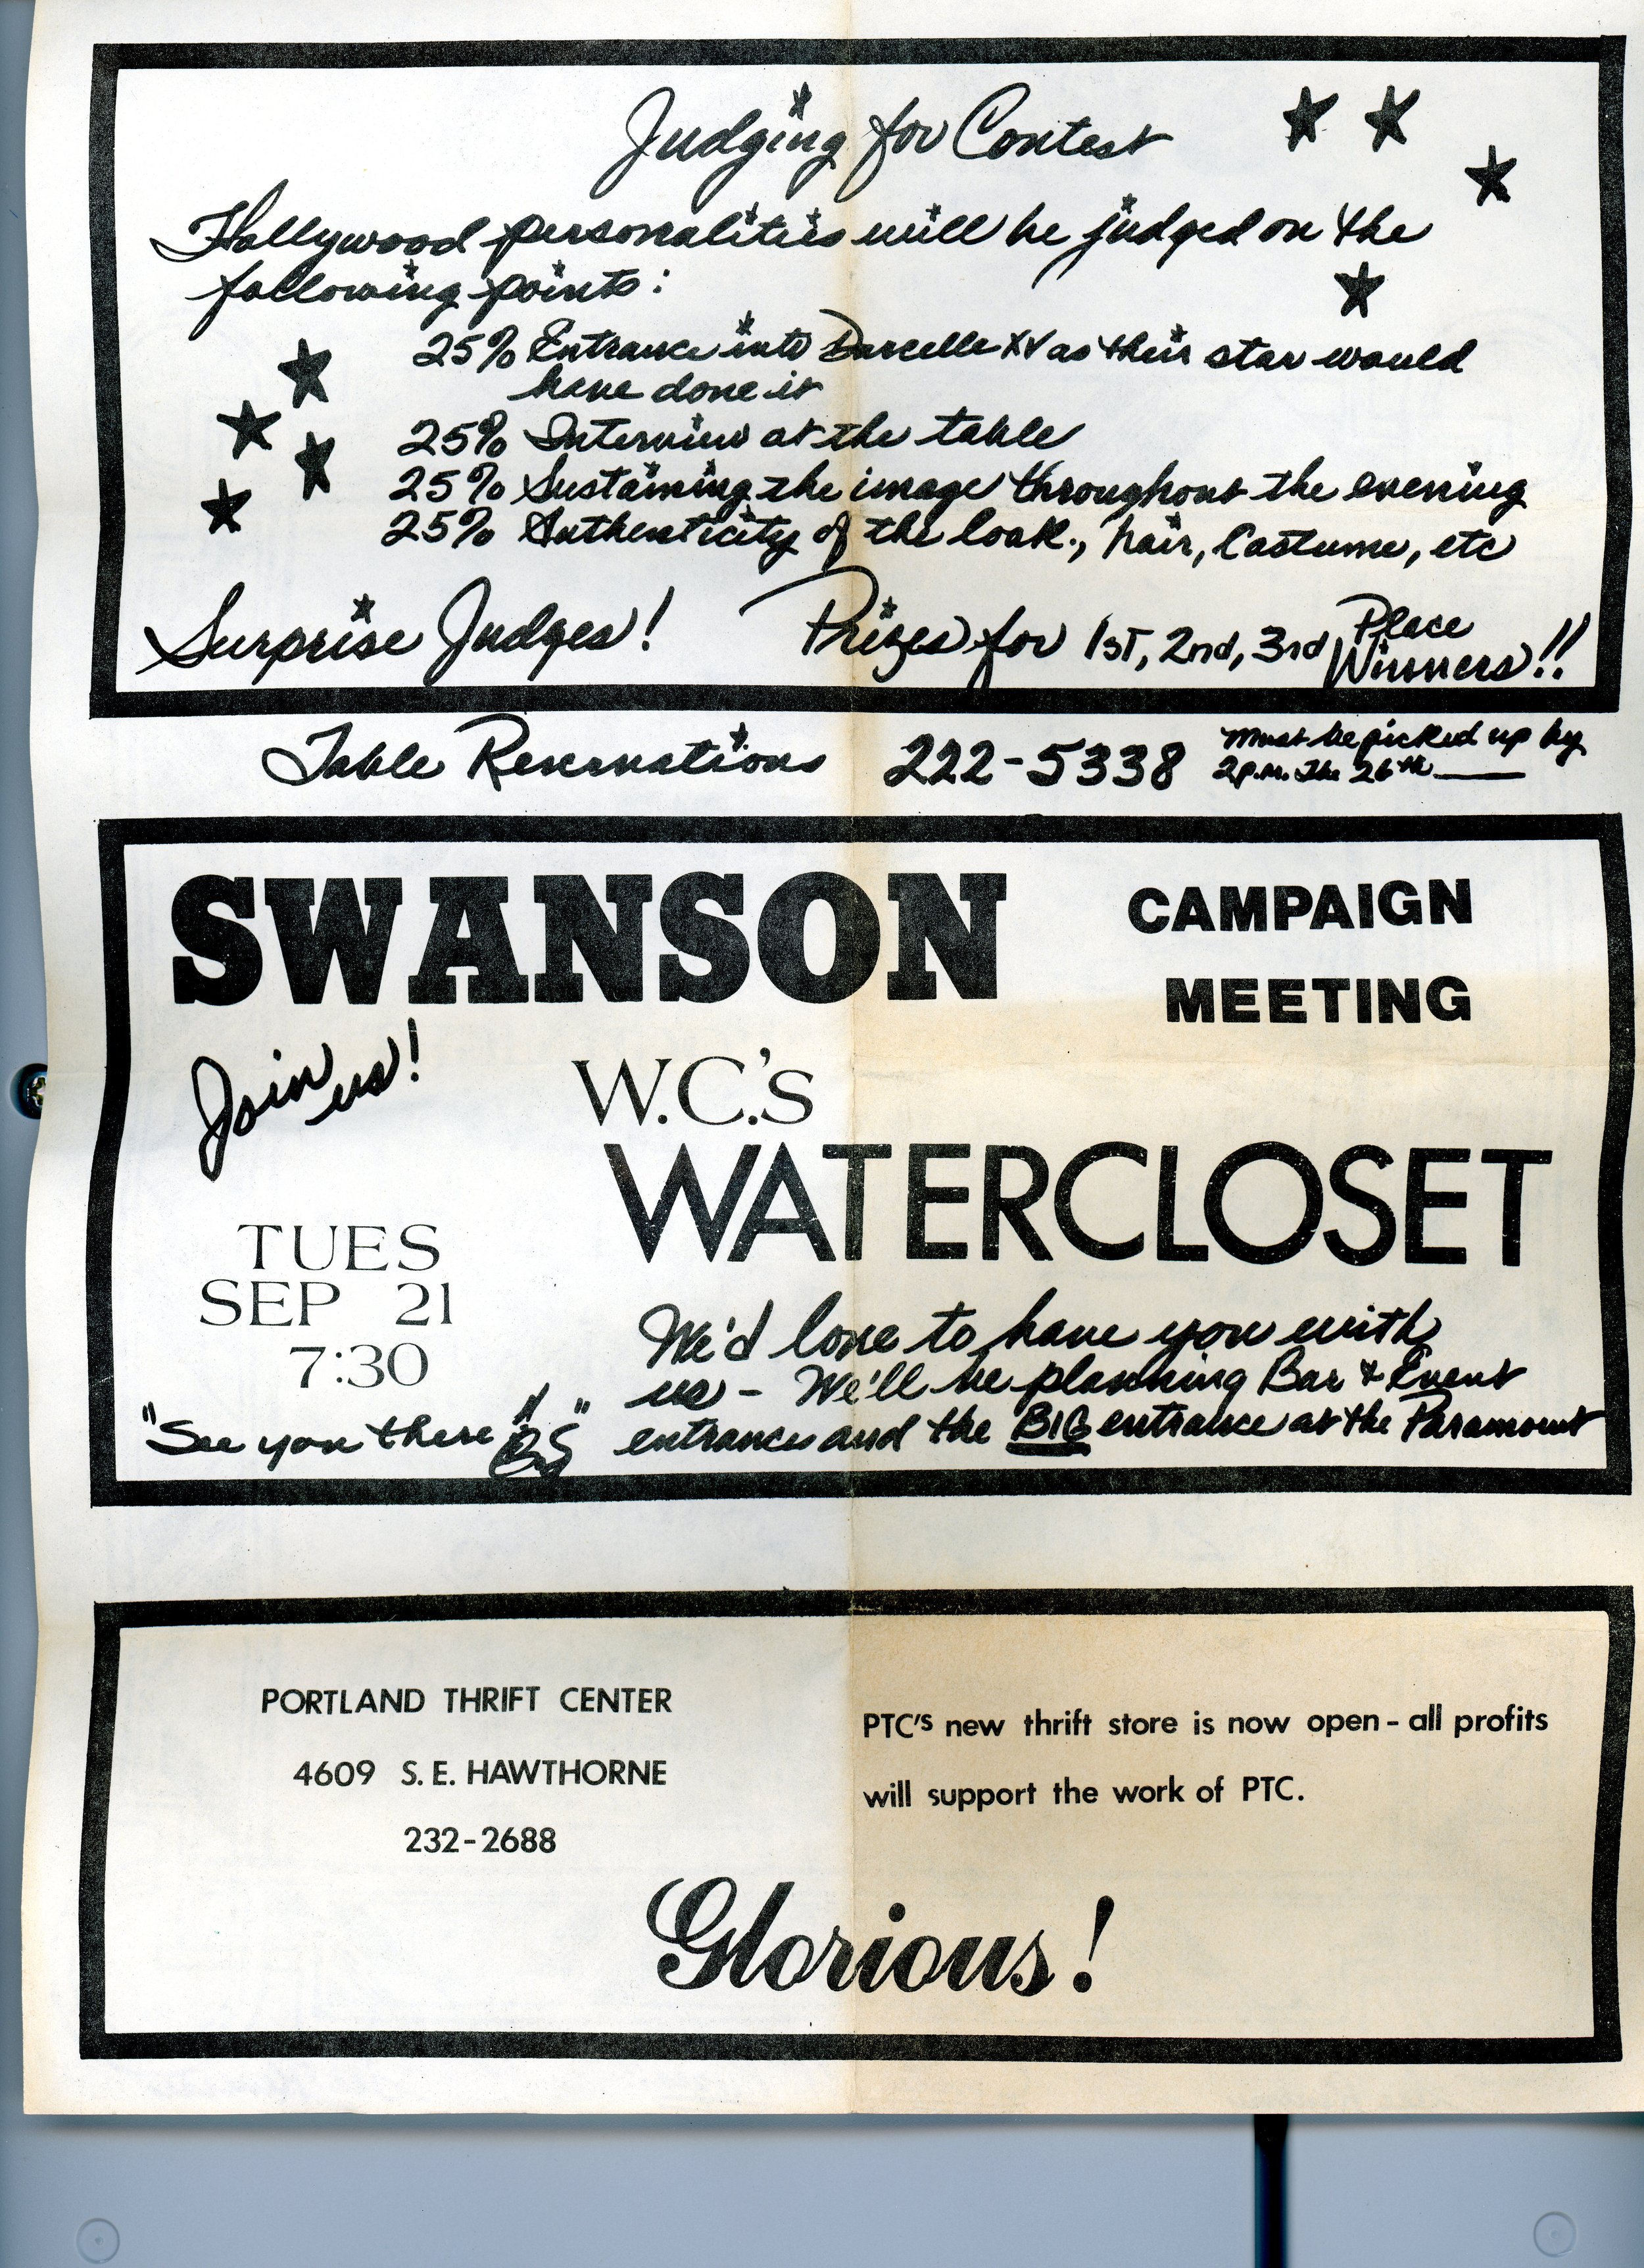 Judging for Contest
Hollywood personalities will be judged on the
following points:
25% Entrance into Darcelle XV as their star would
have done it
25% Interview at the table
25% Sustaining the image throughout the evening
25% Authenticity of the look., hair, Costume, etc
Surprise Judges! Prizes for 1st, 2nd, 3rd Place
Winners!!
Table Reservations 222-5338 must be picked up by
2p.m. the 26th
SWANSON CAMPAIGN
MEETING
Join us!
W.C.'s
WATERCLOSET
TUES
SEP 21
7:30
We'd love to have you with
us - We'll be planning Bar & Event
entrances and the BIG entrance at the Paramount
"See you there" BS
PORTLAND THRIFT CENTER
4609 S.E. HAWTHORNE
232-2688
PTC's new thrift store is now open - all profits
will support the work of PTC.
Glorious!